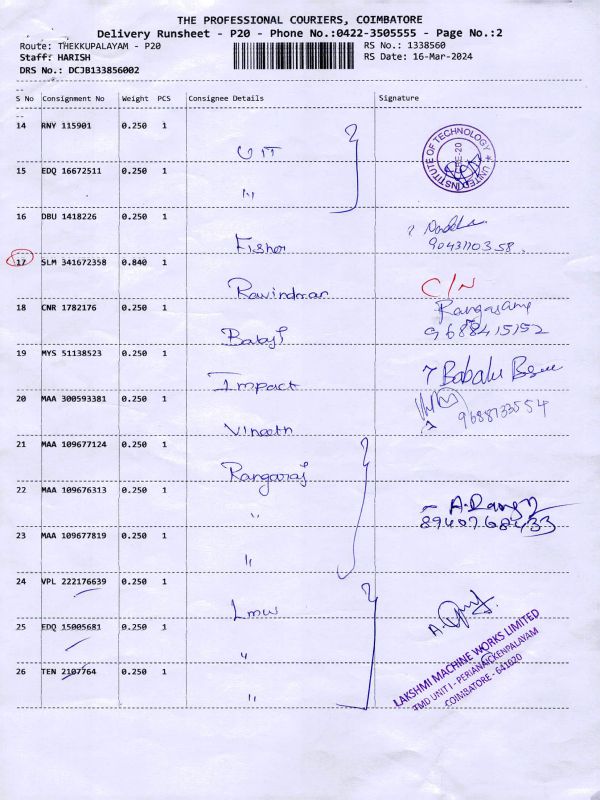 THE PROFESSIONAL COURIERS, COIMBATORE
Delivery Runsheet - P20 - Phone No.:0422-3505555 - Page No.:2
Route: THEKKUPALAYAM - P20 RS No.: 1338560
Staff: HARISH RS Date: 16-Mar-2024
DRS No.: DCJB133856002
S No Consignment No Weight PCS Consignee Details Signature
14 RNY 115901 0.250 1
UIT
UNITED INSTITUTE OF TECHNOLOGY
15 EDQ 16672511 0.250 1
"
16 DBU 1418226 0.250 1
Fisher
9043110358
17 SLM 341672358 0.840 1
Ravindran C/N
18 CNR 1782176 0.250 1
Rangasamy
Babyi 9688415152
19 MYS 51138523 0.250 1
Impact Babalu
20 MAA 300593381 0.250 1
Vineeth 9688733554
21 MAA 109677124 0.250 1
Rangaraj
22 MAA 109676313 0.250 1
" A.Rangs
8940768433
23 MAA 109677819 0.250 1
"
24 VPL 222176639 0.250 1
Lmw
25 EDQ 15005681 0.250 1
"
LAKSHMI MACHINE WORKS LIMITED
TMD UNIT I - PERIANAICKENPALAYAM
COIMBATORE - 641020
26 TEN 2107764 0.250 1
"